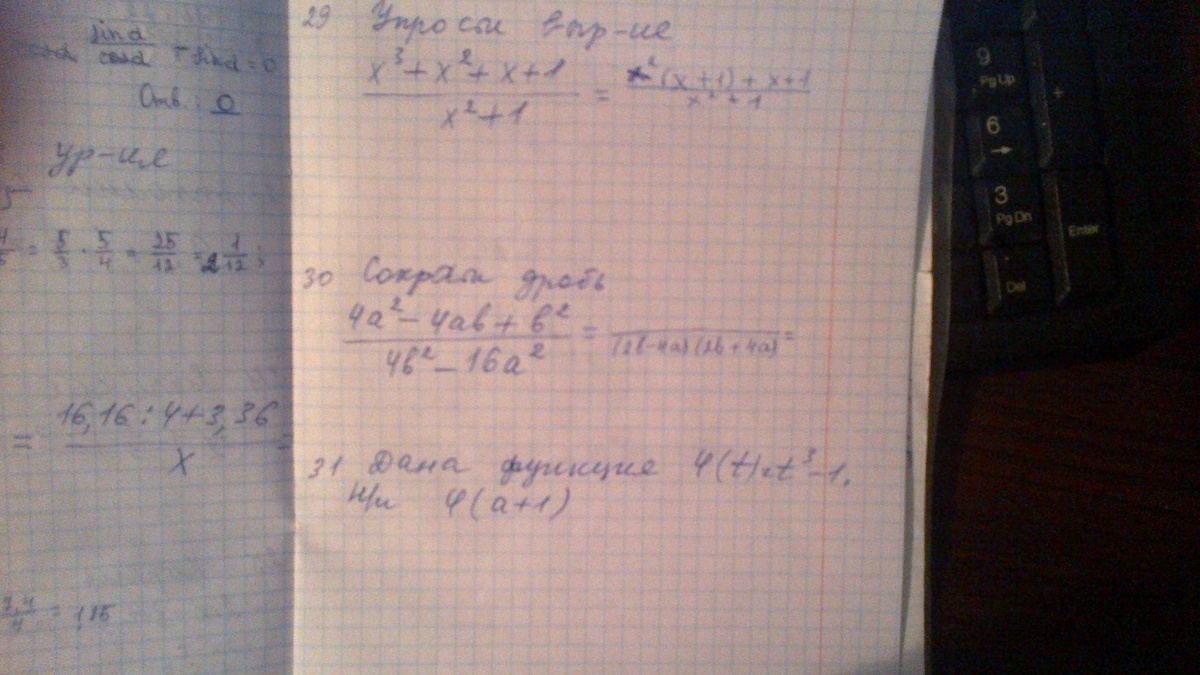 sind/cosd - sind = 0
Отв: 0
ур-ия
= 5/3 · 5/4 = 25/12 = 2 1/12;
= (16,16 : 4 + 3,36)/x =
= 1,85
29 Упрости выр-ие
(x³ + x² + x + 1)/(x² + 1) = (x²(x + 1) + x + 1)/(x² + 1)
30 Сократи дробь
(4a² - 4ab + b²)/(4b² - 16a²) = /((2b - 4a)(2b + 4a)) =
31 Дана функция φ(t) = t³ - 1.
Н/и φ(a+1)
9
Pg Up
+
6
→
3
Pg Dn
Enter
Del